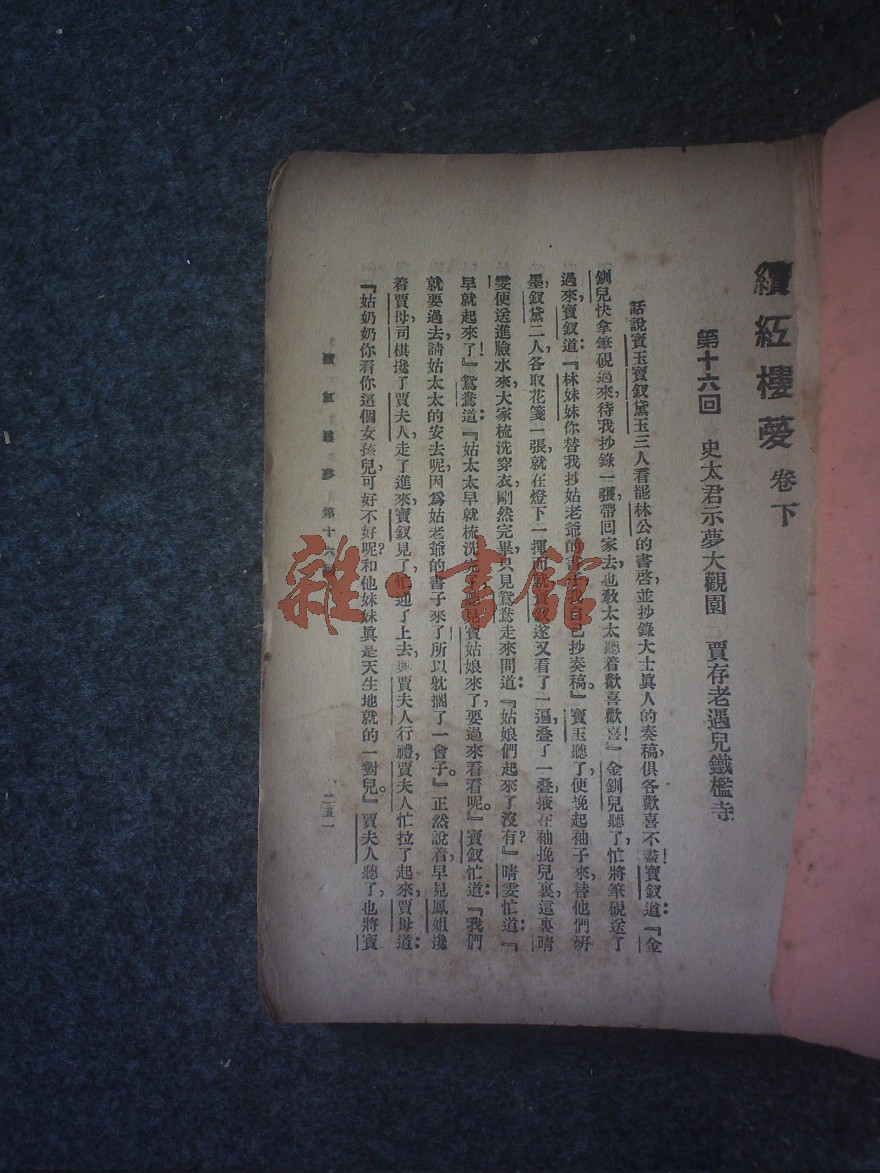 續紅樓夢 卷下
第十六回 史太君示夢大觀園 賈存老遇兒鐵檻寺
話說寶玉寶釵黛玉三人看罷林公的書啓,並抄錄大士眞人的奏稿,俱各歡喜不盡!寶釵道:『金
釧兒快拿筆硯過來,待我抄錄一張,帶回家去,也敎太太聽着歡喜歡喜!』金釧兒聽了,忙將筆硯送了
過來,寶釵道:『林妹妹你替我抄姑老爺的書子,我自己抄奏稿。』寶玉聽了,便挽起袖子來,替他們硏
墨,釵黛二人各取花箋一張,就在燈下一揮而就,寶釵遂又看了一遍,叠了一叠,掖在袖挽兒裏,這裏晴
雯便送進臉水來,大家梳洗穿衣,剛然完畢,只見鴛鴦走來問道:『姑娘們起來了沒有?』晴雯忙道:『
早就起來了!』鴛鴦道:『姑太太早就梳洗完了,聽見寶姑娘來了,要過來看看呢。』寶釵忙道:『我們
就要過去請姑太太的安去呢,因爲姑老爺的書子來了,所以躭擱了一會子。』正然說着,早見鳳姐攙
着賈母,司棋攙了賈夫人,走了進來,寶釵見了,忙迎了上去,與賈夫人行禮,賈夫人忙拉了起來,賈母道:
『姑奶奶你看你這個女孩兒,可好不好呢?和他妹妹眞是天生地就的一對兒。』賈夫人聽了,也將寶
續紅樓夢 第十六
二五一
雜·書館